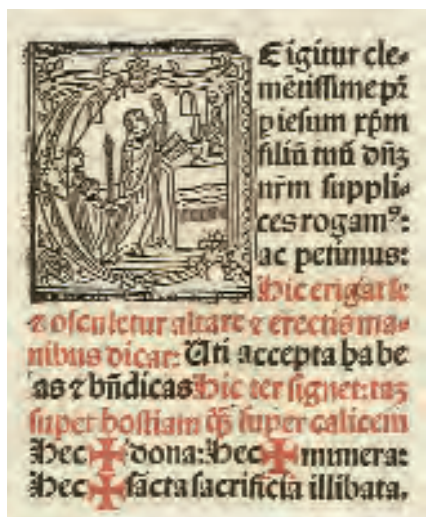 E igitur cle⸗
mētissime pr̄
p iesum xp̄m
filiū tuū dn̄ꝫ
nr̄m suppli⸗
ces rogamꝰ:
ac petimus:
Hic erigat se
⁊ osculetur altare ⁊ erectis ma⸗
nibus dicat: Uti accepta habe
as ⁊ bn̄dicas Hic ter signet: taꝫ
super hostiam q̄ꝫ super calicem
Hec ✠ dona: Hec ✠ munera:
Hec ✠ sācta sacrificia illibata.